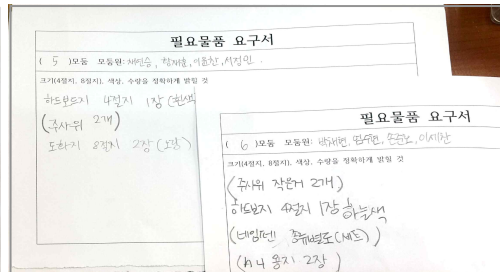 필요물품 요구서
( 5 )모둠 모둠원: 채민승,
크기(4절지, 8절지), 색상, 수량을 정확하게 밝힐 것
하드보드지 4절지 1장 (흰색
(주사위 2개)
도화지 8절지 2장 (노랑)
필요물품 요구서
( 6 )모둠 모둠원: 박채현, 이세찬
크기(4절지, 8절지), 색상, 수량을 정확하게 밝힐 것
(주사위 작은거 2개)
하드보지 4절지 1장 하늘색
(네임펜 종류별로(세트))
(A4 용지 2장)